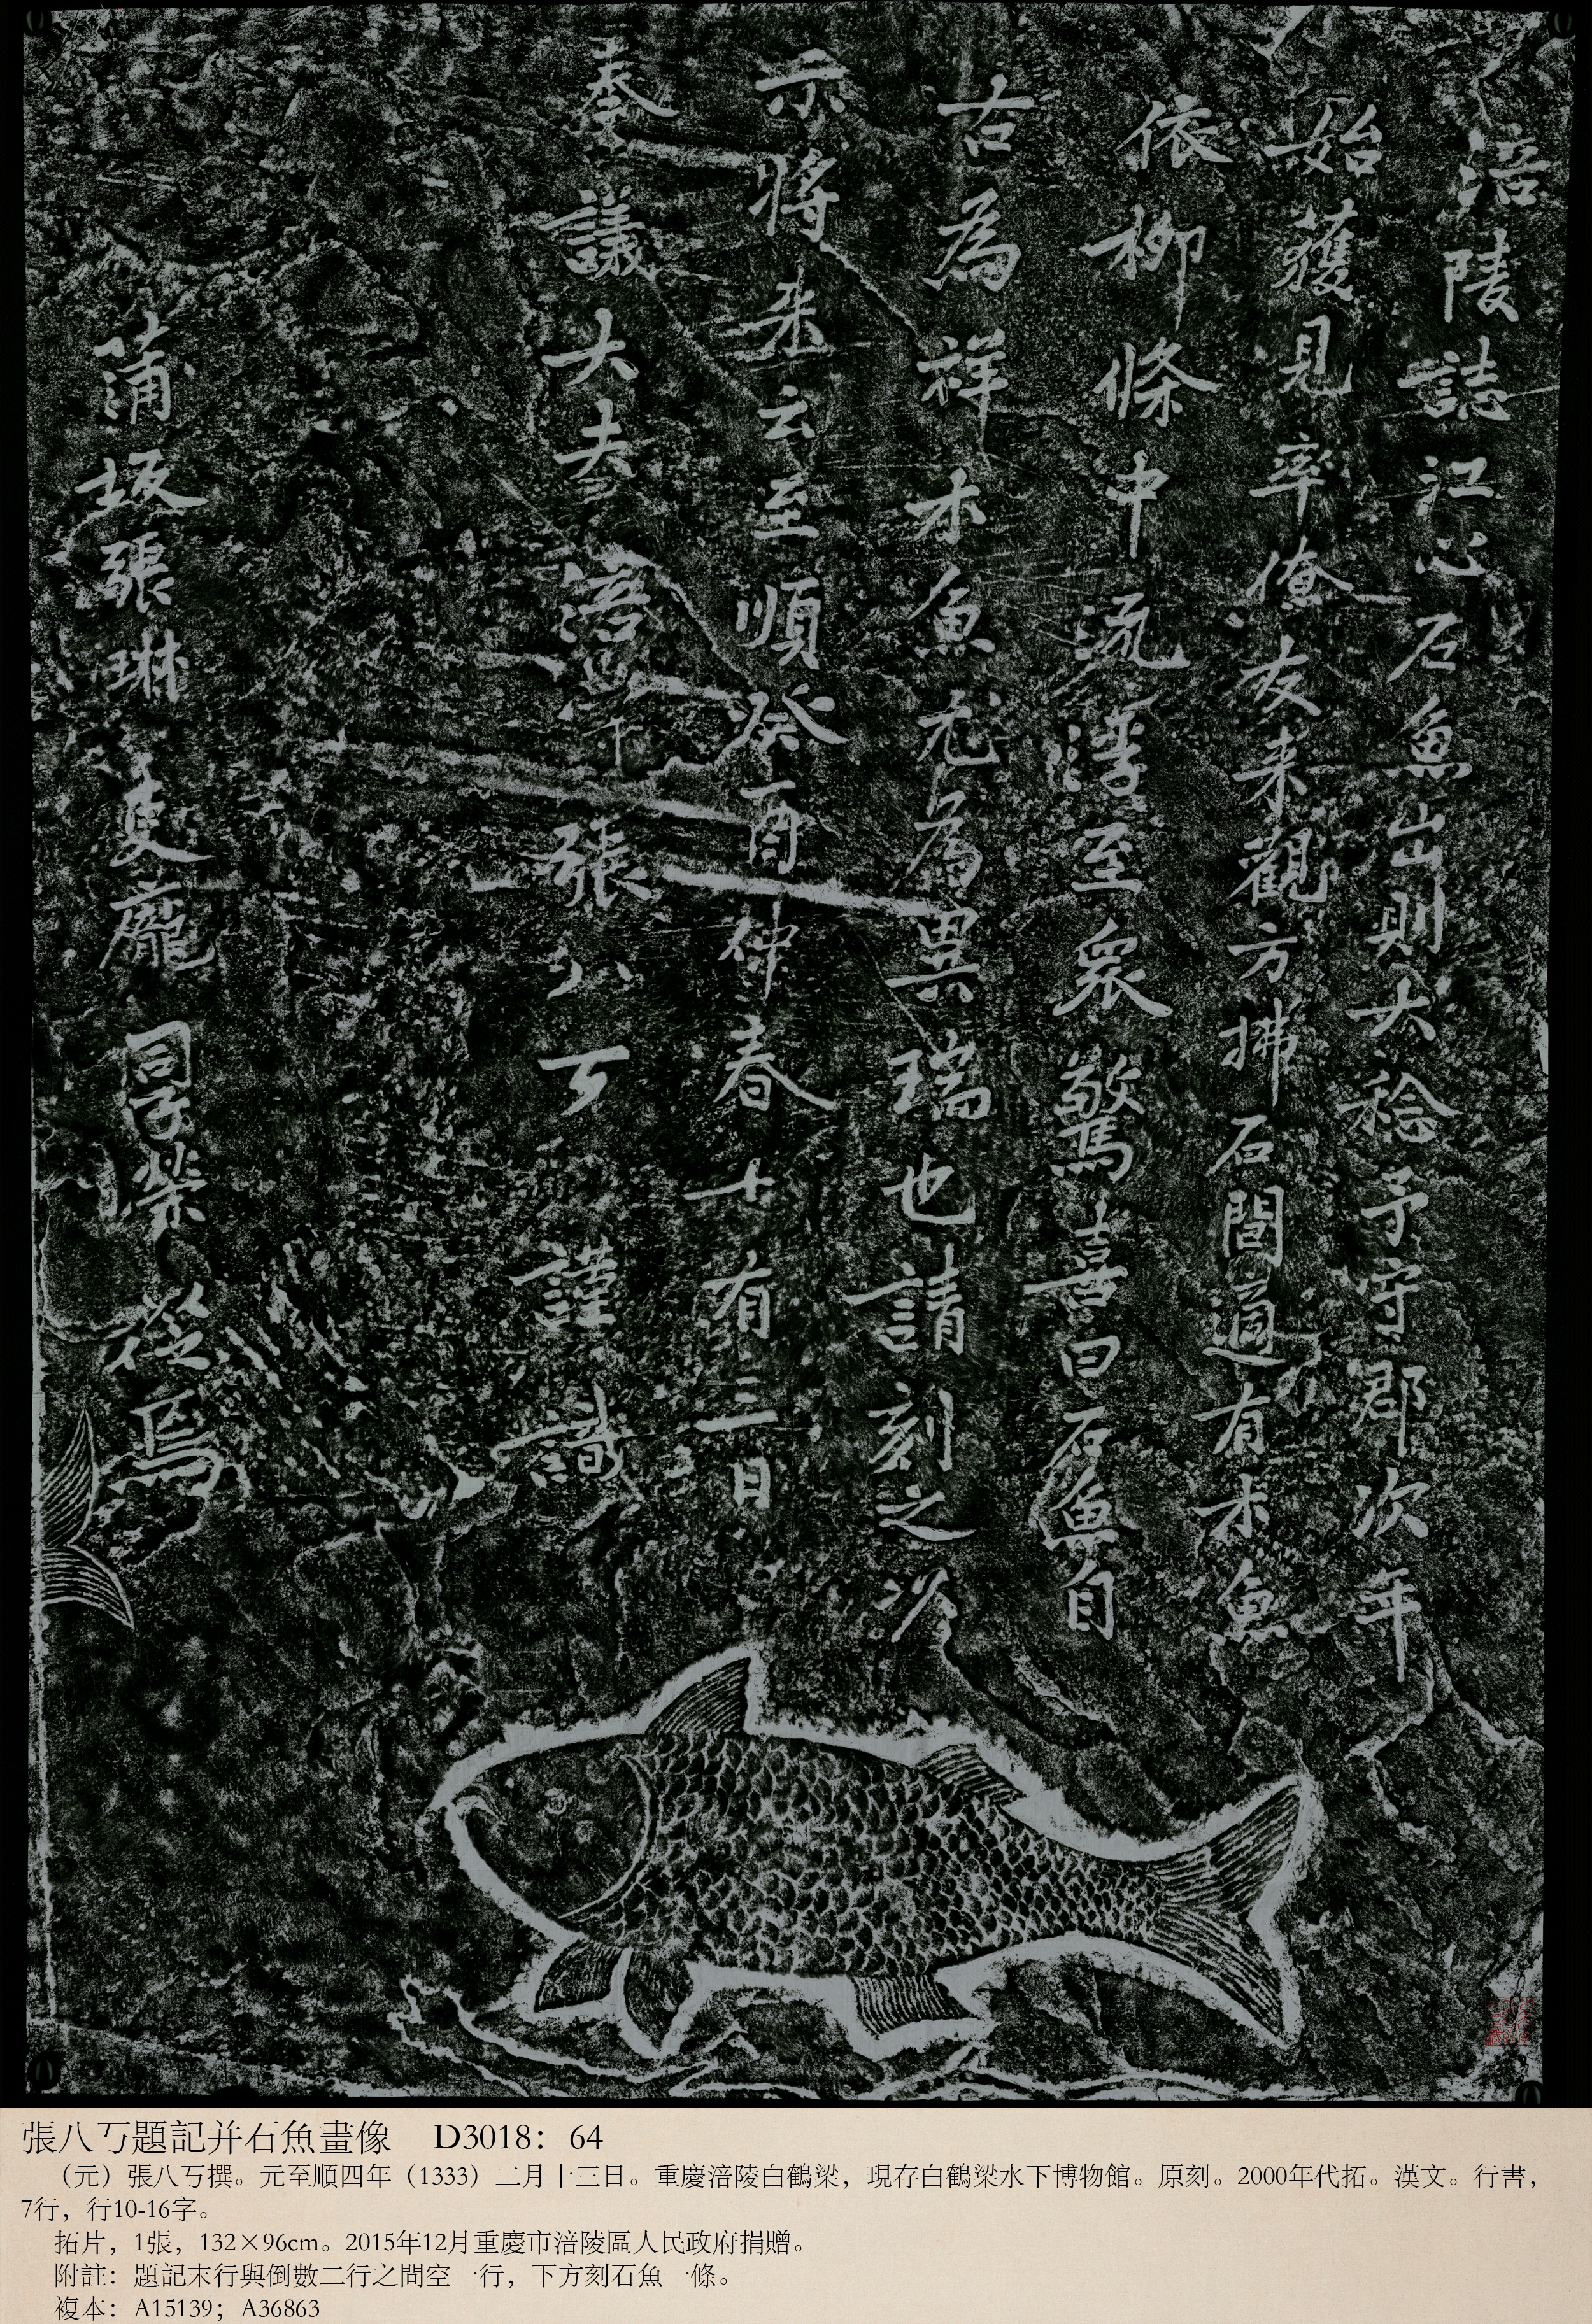 涪陵誌江心石魚出則大稔予守郡次年
始獲見率僚友来觀方拂石間適有木魚
依柳條中流浮至衆驚喜曰石魚自
古為祥木魚尤為異瑞也請刻之以
示將来云至順癸酉仲春十有三日
奉議大夫涪守張八丂謹識
蒲坂張琳龐榮從焉
張八丂題記并石魚畫像　D3018：64
（元）張八丂撰。元至順四年（1333）二月十三日。重慶涪陵白鶴梁，現存白鶴梁水下博物館。原刻。2000年代拓。漢文。行書，
7行，行10-16字。
拓片，1張，132×96cm。2015年12月重慶市涪陵區人民政府捐贈。
附註：題記末行與倒數二行之間空一行，下方刻石魚一條。
複本：A15139；A36863